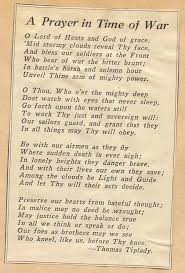 A Prayer in Time of War
O Lord of Hosts and God of grace,
'Mid stormy clouds reveal Thy face,
And bless our soldiers at the Front
Who bear of war the bitter brunt;
In battle's harsh and solemn hour
Unveil Thine arm of mighty power.
O Thou, Who o'er the mighty deep
Dost watch with eyes that never sleep,
Go forth upon the waters still
To work Thy just and sovereign will;
Our sailors guard, and grant that they
In all things may Thy will obey.
Be with our airmen as they fly
Where sudden death is ever nigh;
In lonely heights they danger brave,
And with their lives our own they save;
Among the clouds be Light and Guide
And let Thy will their acts decide.
Preserve our hearts from hateful thought;
In malice may no deed be wrought;
May justice hold the balance true
In all we think or speak or do;
Our foes as brothers may we see
Who kneel, like us, before Thy knee.
—Thomas Tiplady.